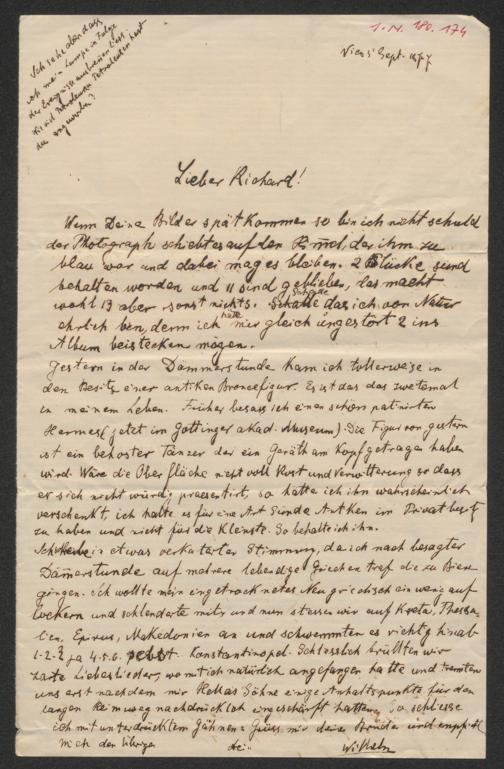 I. N. 180. 174
Wien 5 Sept. 1877
Ich sehe eben dass
ich meine Lampe in Folge
der Ereignisse ausbrennen liess
wie viel Petroleum
Lieber Richard!
Wenn Deine Bilder spät kommen so bin ich nicht schuld
der Photograph schiebt es auf den der ihm zu
blau war und dabei mag es bleiben. 2 Stücke sind
behalten worden und 11 sind geblieben, das macht
wohl 13 aber sonst nichts. Schade das ich von Natur
ehrlich bin, denn ich hätte mir gleich ungestört 2 ins
Album beistecken mögen.
Gestern in der Dämmerstunde kam ich tollerweise in
den Besitz einer antiken Broncefigur. Es ist das das zweitemal
in meinem Leben. Früher besass ich einen schön patinirten
Hermes (jetzt im Göttinger akad. Museum). Die Figur von gestern
ist ein Tänzer der ein Geräth am Kopf getragen haben
wird. Wäre die Oberfläche nicht voll Rost und Verwitterung so dass
er sich nicht würdig praesentirt, so hätte ich ihn wahrscheinlich
verschenkt, ich halte es für eine Art Sünde Antiken im Privatbesitz
zu haben und nicht für die Kleinste. So behalte ich ihn.
Ich in etwas verkaterter Stimmung, da ich nach besagter
Dämerstunde auf mehrere lebendige Griechen traf die zu Biere
gingen. Ich wollte mein eingetrocknetes Neugriechisch ein wenig auf
lockern und schlenderte mit, und nun stiessen wir auf Kreta, Thessa-
lien, Epirus, Makedonien an und schwemmten es richtig hinab
1. 2. 3 ja 4. 5. 6. Konstantinopel. Schliesslich brüllten wir
zarte Liebeslieder, womit ich natürlich angefangen hatte und trennten
uns erst nachdem mir Hellas Söhne einige Anhaltspunkte für den
langen Heimweg nachdrücklich eingeschärft hatten. So schliesse
ich mit unterdrücktem Gähnen: Grüss mir deine Brüder und empfiehl
mich den übrigen
Wilhelm